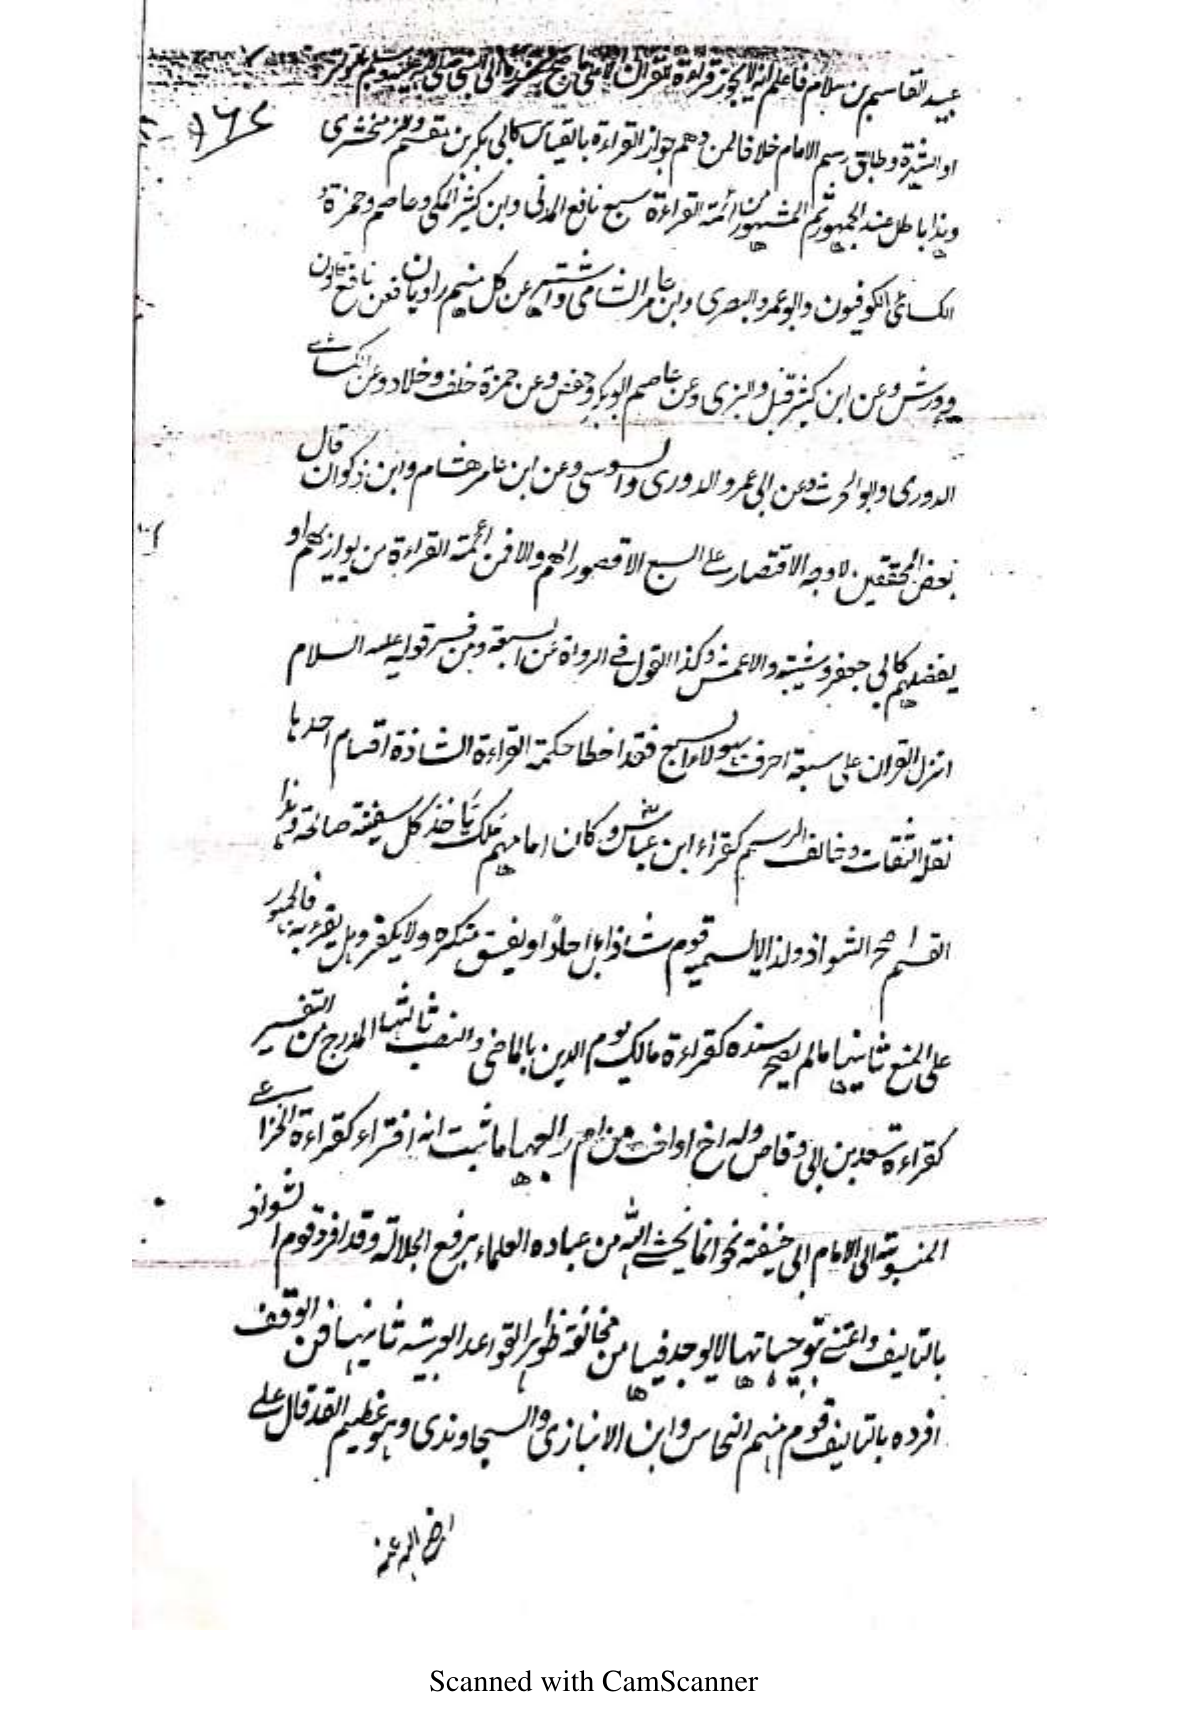 عبيد القاسم بن سلام فاعلم انه لا يجوز قراءة القران الا بما صح سنده الى النبى صلى الله عليه وسلم بتواتر
١٦٤
او الشهرة وطابق رسم الامام خلافا لمن وهم جواز القراءة بالقياس كابى بكر بن مقسم والزمخشرى
وهذا باطل عند الجمهور ثم المشهور من ائمة القراءة سبع نافع المدنى وابن كثير المكى وعاصم وحمزة و
الكسائى الكوفيون وابو عمرو البصرى وابن عامر الشامى واشتهر عن كل منهم راويان فعن نافع قالون
وورش وعن ابن كثير قنبل والبزى وعن عاصم ابو بكر وحفص وعن حمزة خلف وخلاد وعن الكسائے
الدورى وابو الحرث وعن ابى عمرو الدورى والسوسى وعن ابن عامر هشام وابن ذكوان قال
بعض المحققين لا وجه الاقتصار على السبع الا قصور الهم والا فمن ائمة القراءة من يوازيهم او
يفضلهم كابى جعفر وشيبة والاعمش وكذا القول فى الرواة عن السبعة ومن فسر قوله عليه السلام
انزل القران على سبعة احرف بهولاء السبع فقد اخطا حكمة القراءة الشاذة اقسام احدها
نقله الثقات وخالف الرسم كقراء ابن عباس وكان امامهم ملك يأخذ كل سفينة صالحة وهذا
القسم اصح الشواذ ولذا لا يسميه قوم شاذا بل احادًا ويفسق منكره ولا يكفر وهل يقرء به فالجمهور
على المنع ثانيها ما لم يصح سنده كقراءة مالك يوم الدين بالماضى والنصب ثالثها المدرج من التفسير
كقراءة سعد بن ابى وقاص وله اخ او اخت من ام رابعها ما ثبت انه افتراء كقراءة الخزاعے
المنسوبة الى الامام ابى حنيفة نحو انما يخشى الله من عباده العلماء برفع الجلالة وقد افرد قوم الشواذ
بالتاليف واعتنے بتوجيهاتها لا يوجد فيها من مخالفة ظواهر القواعد العربية ثانيها فن الوقف
افرده بالتاليف قوم منهم النحاس وابن الانبارى والسجاوندى وهو عظيم القد قال على
رضى الله عنه
Scanned with CamScanner